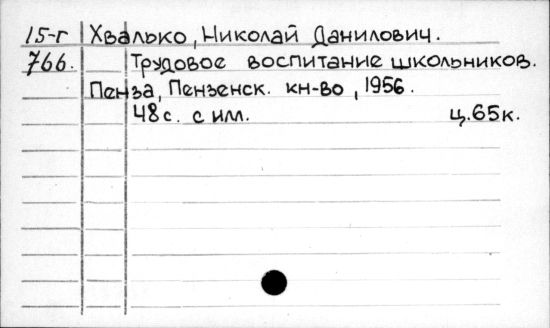 15-г Хвалько, Николай Данилович.
766. Трудовое воспитание школьников.
Пенза, Пензенск. кн-во, 1956.
48 с. с илл. ц. 65 к.